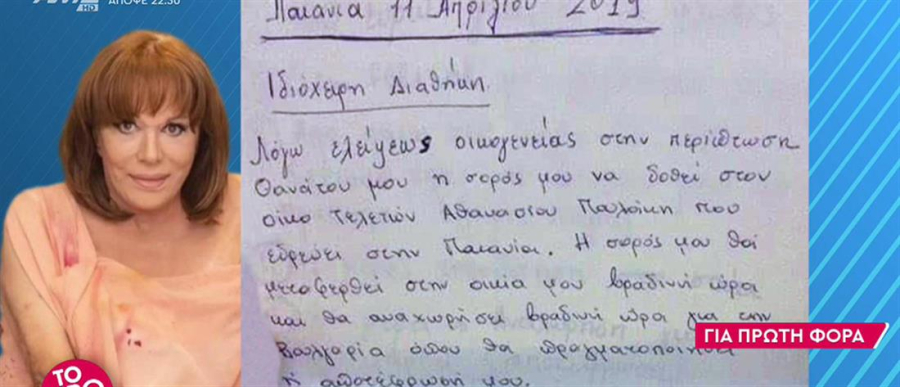 HD ΑΠΟΨΕ 22:30
Παιανία 11 Απριλίου 2019
Ιδιόχειρη Διαθήκη
Λόγω ελείψεως οικογενείας στην περίπτωση
θανάτου μου η σορός μου να δοθεί στον
οίκο τελετών Αθανασίου Παυλάκη που
εδρεύει στην Παιανία. Η σορός μου θα
μεταφερθεί στην οικία μου βραδινή ώρα
και θα αναχωρήσει βραδινή ώρα για την
Βουλγαρία όπου θα πραγματοποιηθεί
η αποτέφρωσή μου.
ΓΙΑ ΠΡΩΤΗ ΦΟΡΑ
ΤΟ